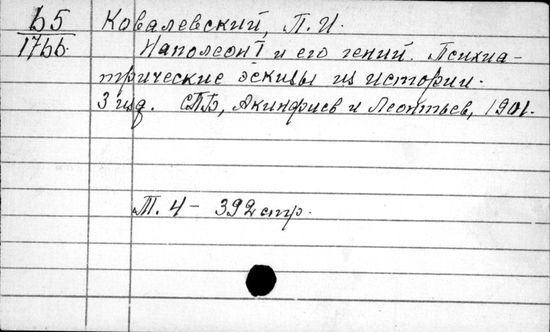 Б5
1766
Ковалевский, П. И.
Наполеон I и его гений. Психиа-
трические эскизы из истории.
3 изд. СПБ, Акинфиев и Леонтьев, 1901.
Т. 4 - 392 стр.